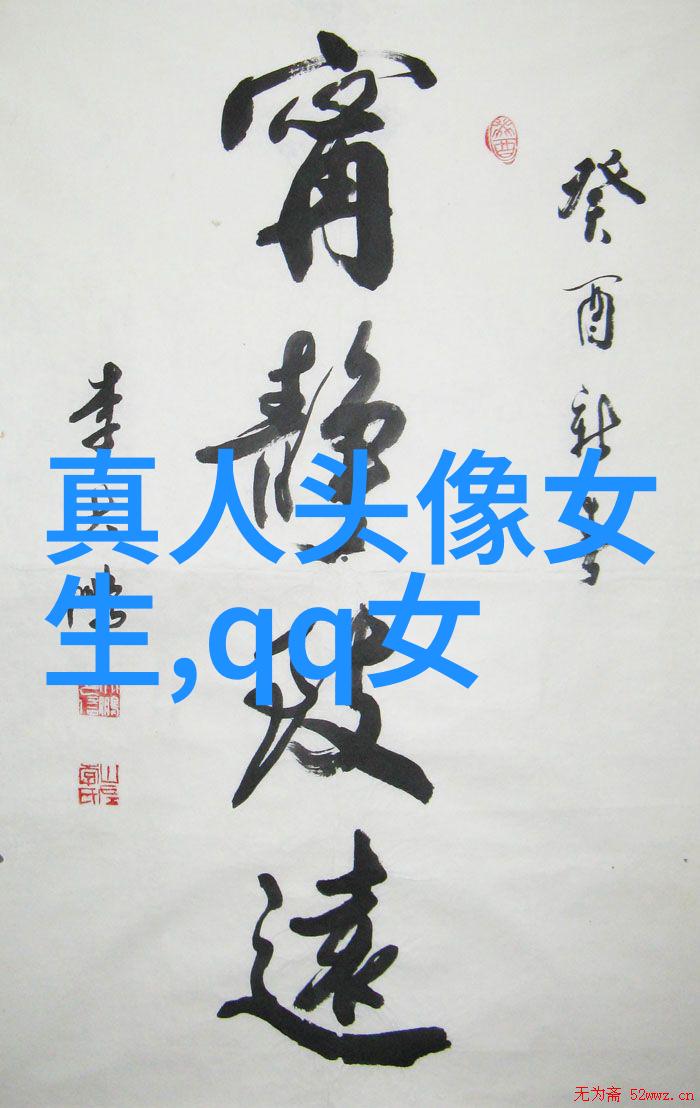 癸酉新春
甯靜致遠
真人头像女
生,qq女
无为斋 52wwz.cn